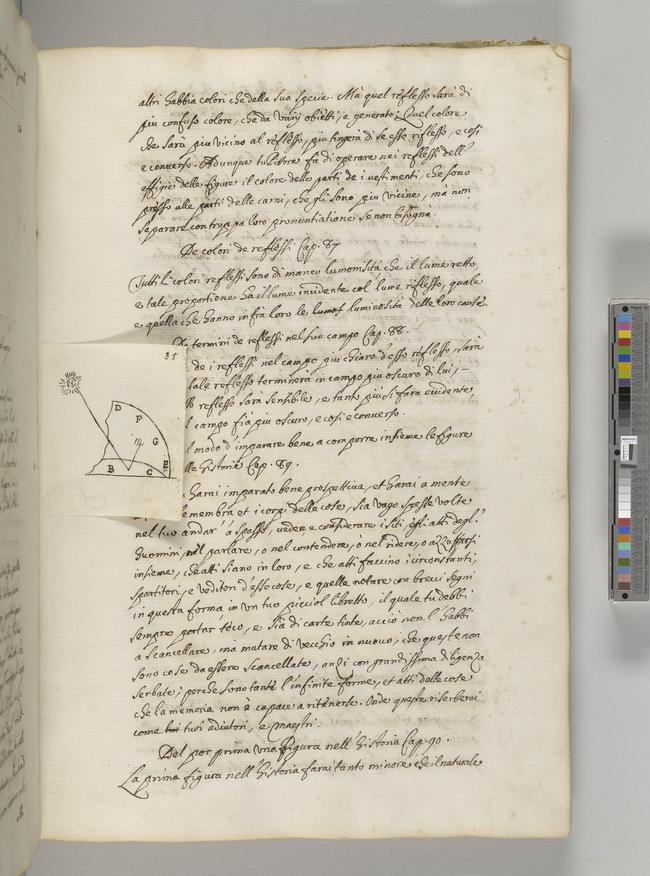 altri habbia colori che della sua specie. Mà quel reflesso sarà di
piu confuso colore, che da varij obietti, e generato; Quel colore
che sarà piu vicino al reflesso, piu tingerà di se esso reflesso, e così
e converso. Adunque tu Pittore fà di operare nei reflessi dell'
effigie delle figure il colore delle parti de i vestimenti, che sono
presso alle parti delle carni, che gli sono piu vicine, mà non
separare con troppa loro pronuntiatione se non bisogna.
De colori de reflessi. Cap. 87
Tutti li colori reflessi sono di manco lumosità che il lume retto
e tale proportione ha il lume incidente col lume reflesso, quale
e quella che hanno infrà loro le luminosità delle loro cause.
termini de reflessi nel suo campo Cap. 88.
de i reflessi nel campo piu chiaro d'esso reflesso, sarà
tale reflesso terminerà in campo piu oscuro di lui,
reflesso sarà sensibile, e tanto piu si farà evidente
campo fia piu oscuro, e così e converso.
modo d'imparare bene a comporre insieme le figure
historia Cap. 89.
harai imparato bene prospettiva, et harai a mente
membra et i corpi delle cose, sia vago spesse volte
nel tuo andar' a spasso, vedere e considerare i siti, e gli atti degl'
huomini, nel parlare, o nel contendere, ò nel ridere, o azzuffarsi
insieme, che atti siano in loro, e che atti faccino i circonstanti,
spartitori, e veditori d'esse cose, e quelle notare con brevi segni
in questa forma in un tuo picciol libretto, il quale tu debbi
sempre portar' teco, e sia di carte tinte, acciò non l'habbi
à scancellare, ma mutare di vecchio in nuovo, che queste non
sono cose da essere scancellate, anzi con grandissima diligenza
serbate; perche sono tante l'infinite forme, et atti delle cose
che la memoria non è capace a ritenerse. Onde queste riserberai
come tuoi adiutori, e maestri.
Del por prima una figura nell'historia Cap. 90.
La prima figura nell'historia farai tanto minore che il naturale
85
D
F
G
E
B
C